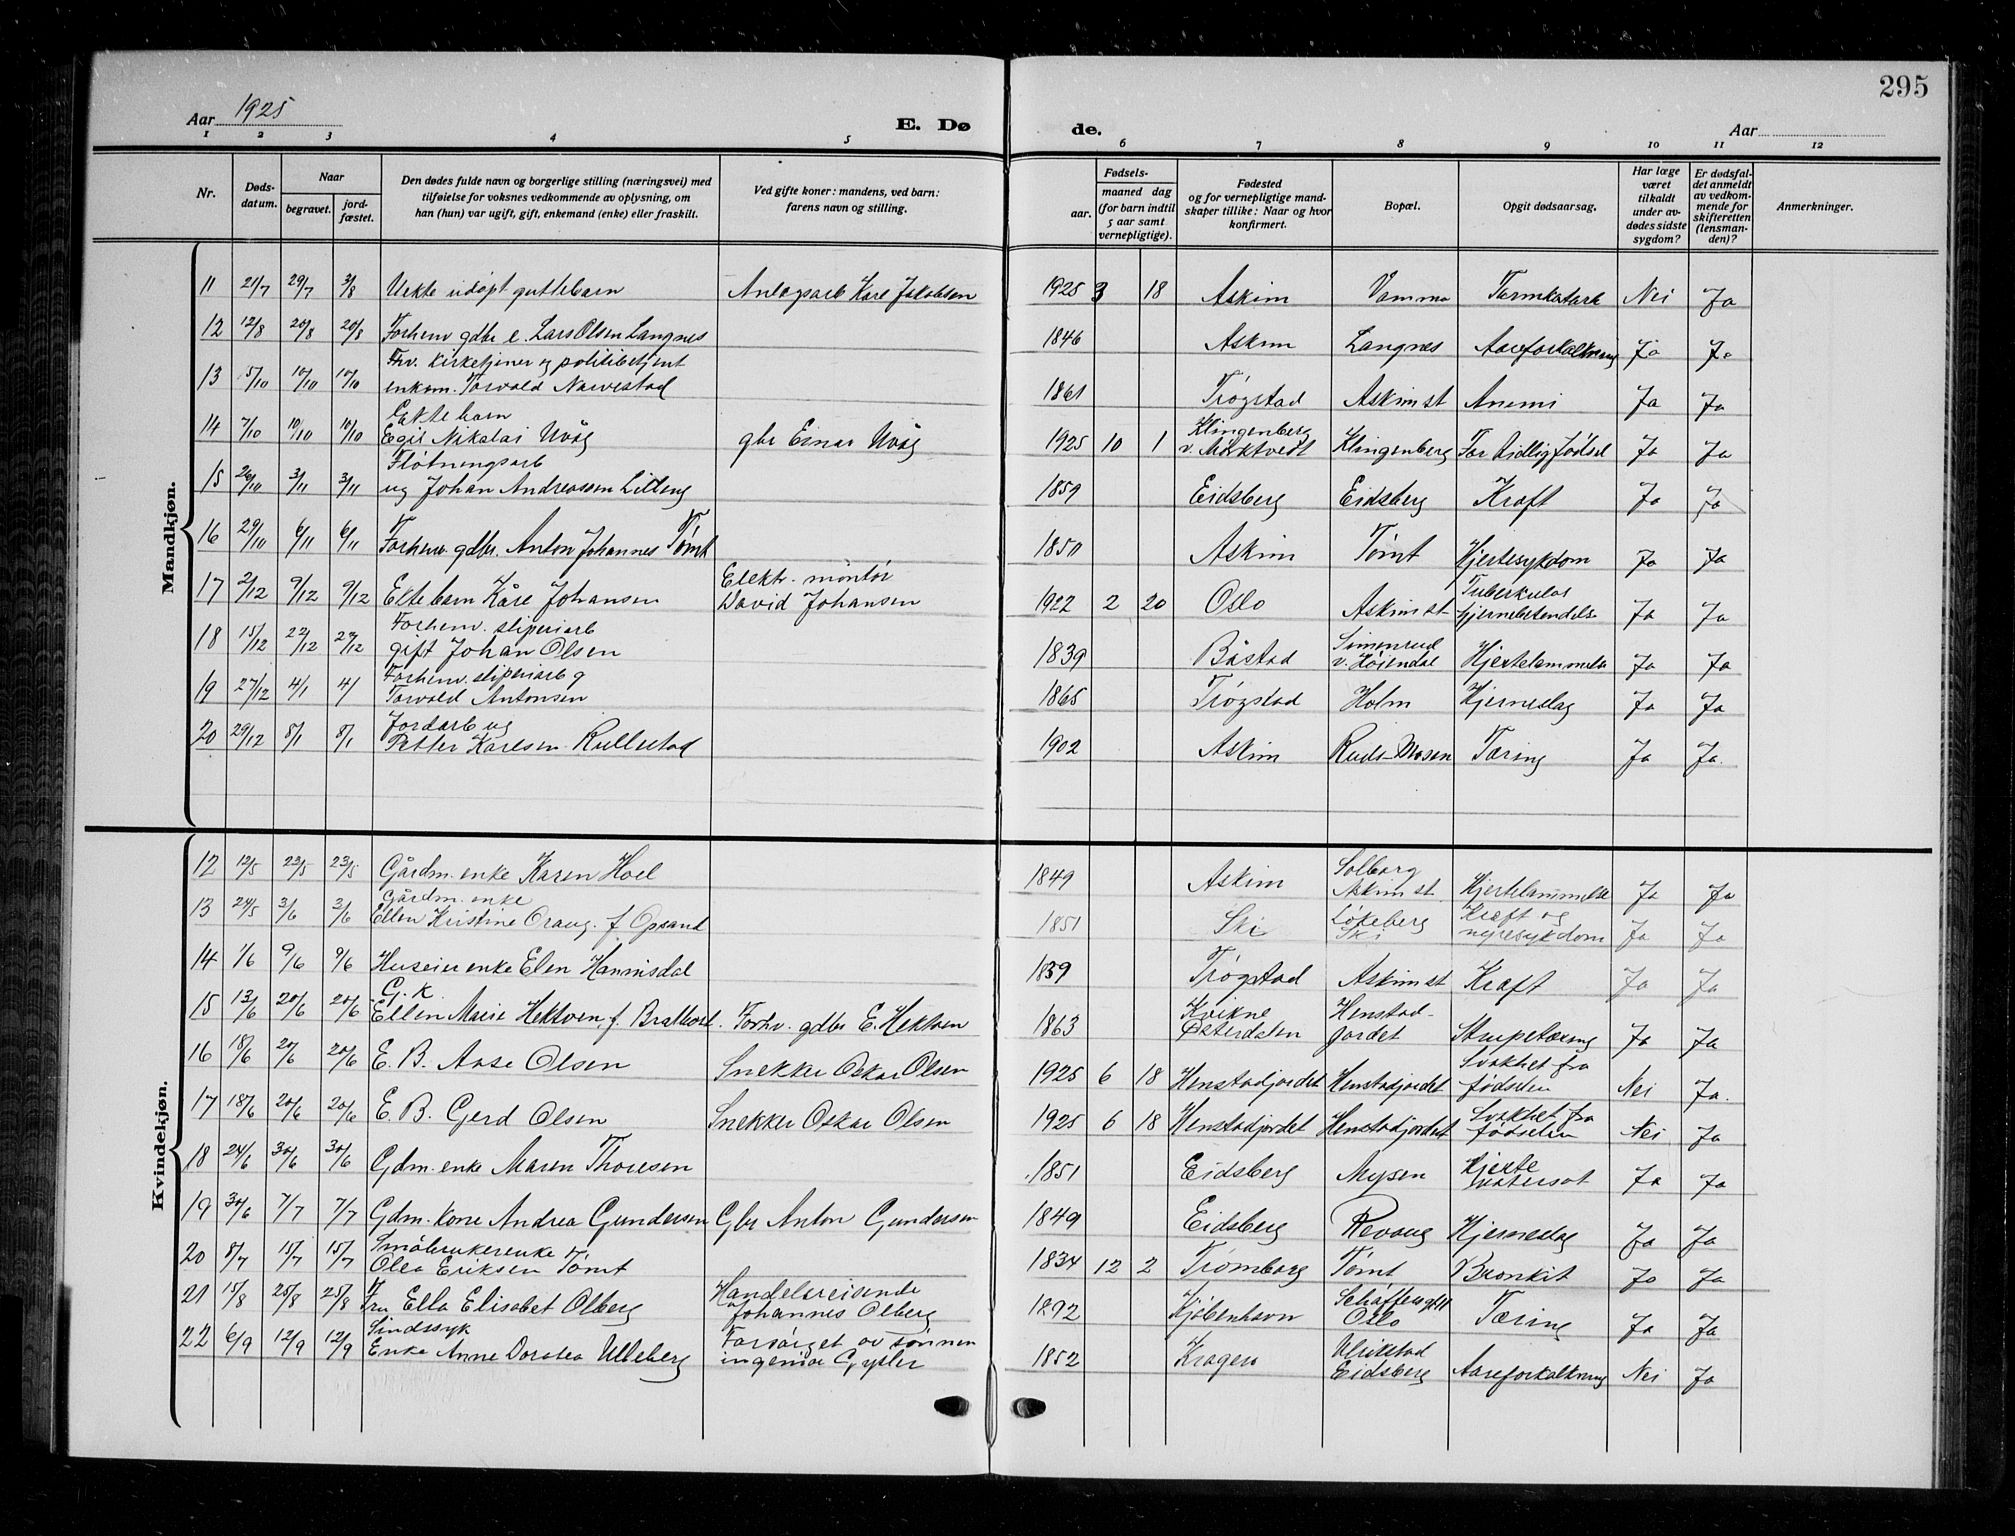 295
Aar 1925
E. Dø
de.
Aar
1 2 3 4 5
6 7 8 9 10 11 12
Nr.
Døds-
datum.
Naar
begravet.
jord-
fæstet.
Den dødes fulde navn og borgerlige stilling (næringsvei) med
tilføielse for voksnes vedkommende av oplysning, om
han (hun) var ugift, gift, enkemand (enke) eller fraskilt.
Ved gifte koner: mandens, ved barn:
farens navn og stilling.
Fødsels-
aar.
maaned dag
(for barn indtil
5 aar samt
vernepligtige).
Fødested
og for vernepligtige mand-
skaper tillike: Naar og hvor
konfirmert.
Bopæl.
Opgit dødsaarsag.
Har læge
været
tilkaldt
under av-
dødes sidste
sygdom?
Er dødsfal-
det anmeldt
av vedkom-
mende for
skifteretten
(lensman-
den)?
Anmerkninger.
Mandkjøn.
11 21/7 29/7 3/8 Uekte udøpt guttebarn Anlegsarb Kare Jakobsen 1925 3 18 Askim Vamma Tarmkatarh Nei Ja
12 12/8 20/8 20/8 Forhenv gdbr e. Lars Olsen Langnes 1846 Askim Langnes Aareforkalkning Ja Ja
Fhv. kirketjener og politibetjent
13 5/10 10/10 10/10 enkem. Torvald Navestad 1861 Trøgstad Askim st Anemi Ja Ja
Ekte barn
14 7/10 10/10 10/10 Egil Nikolai Uvåg gbr Einar Uvåg 1925 10 1 Klingenberg v. Mørktvedt Klingenberg For tidlig fødsel Ja Ja
Fløtningsarb
15 26/10 3/11 3/11 ug Johan Andreassen Litteng 1859 Eidsberg Eidsberg Kræft Ja Ja
16 29/10 6/11 6/11 Forhenv. gdbr. Anton Johannes Tømt 1850 Askim Tømt Hjertesykdom Ja Ja
17 2/12 9/12 9/12 Ekte barn Kåre Johansen Elektr. montør David Johansen 1922 2 20 Oslo Askim st Tuberkuløs hjernebetendelse Ja Ja
Forhenv. sliperiarb
18 15/12 22/12 22/12 gift Johan Olsen 1839 Båstad Simenrud v. Høiendal Hjertelammelse Ja Ja
Forhenv. sliperiarb g
19 27/12 4/1 4/1 Torvald Antonsen 1865 Trøgstad Holm Hjerneslag Ja Ja
Jordarb ug
20 29/12 8/1 8/1 Petter Karlsen Rullestad 1902 Askim Ruds-Mosen Tæring Ja Ja.
Kvindekjøn.
12 12/5 23/5 23/5 Gårdm. enke Karen Hoel 1849 Askim Solborg Askim st. Hjertelammelse Ja Ja
Gårdm. enke
13 24/5 3/6 3/6 Ellen Kristine Oraug f. Opsand 1851 Ski Løkeberg Ski Kræft og nyresykdom Ja Ja
14 1/6 9/6 9/6 Huseierenke Elen Hannisdal 1839 Trøgstad Askim st Kræft Ja Ja
G. K.
15 13/6 20/6 20/6 Ellen Marie Hektoen, f. Brattvol. Forhv. gdbr E. Hektoen 1863 Kvikne Østerdalen Henstadjordet Strupetæring Ja Ja
16 18/6 20/6 20/6 E. B. Aase Olsen Snekker Oskar Olsen 1925 6 18 Henstadjordet Henstadjordet Svakhet fra fødselen Nei Ja.
17 18/6 20/6 20/6 E. B. Gerd Olsen Snekker Oskar Olsen 1925 6 18 Henstadjordet Henstadjordet Svakhet fra fødselen Nei Ja
18 24/6 30/6 30/6 Gdm. enke Maren Thoresen 1851 Eidsberg Mysen Hjerte Ja Ja
19 30/6 7/7 7/7 Gdm. kone Andrea Gundersen Gbr Anton Gundersen 1849 Eidsberg Revaug Hjerneslag Ja Ja
Småbrukerenke
20 8/7 15/7 15/7 Olea Eriksen Tømt 1834 12 2 Trømborg Tømt Bronkit Ja Ja
21 15/8 25/8 25/8 Fru Ella Elisabet Olberg Handelsreisende Johannes Olberg 1892 Kjøbenhavn Oslo Tæring Ja Ja
Sindssyk
22 6/9 12/9 12/9 Enke Anne Dorotea Ulleberg Forsørget av sønnen ingeniør Gysler 1852 Kragerø Ulrikstad Eidsberg Aareforkalkning Nei Ja